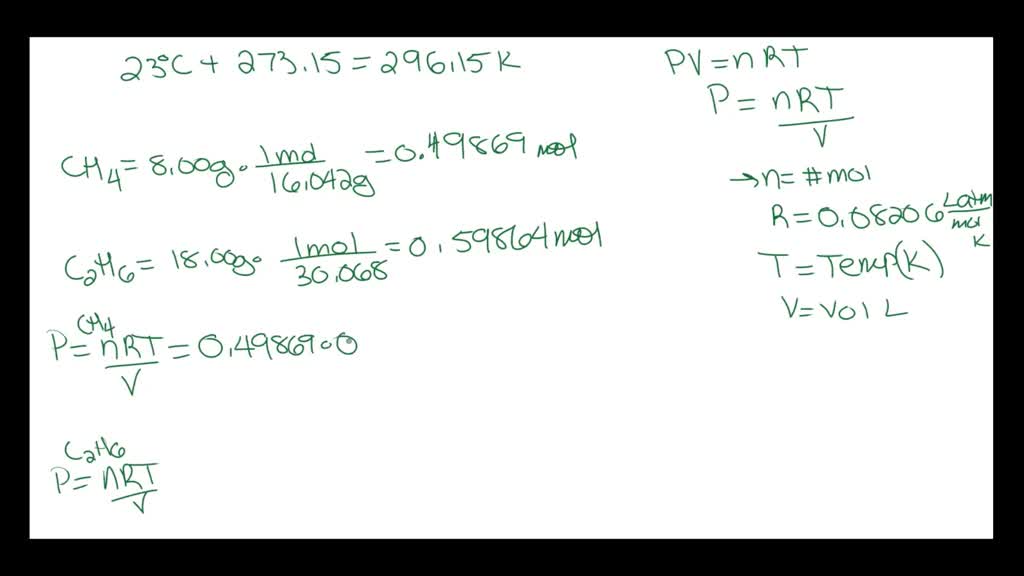 23°C + 273.15 = 296.15 K
CH4 = 8.00g · 1mol / 16.042g = 0.49869 mol
C2H6 = 18.00g · 1mol / 30.068 = 0.59864 mol
CH4
P = nRT / V = 0.49869 · 0
C2H6
P = nRT / V
PV = nRT
P = nRT / V
→ n = # mol
R = 0.08206 L atm / mol K
T = Temp(K)
V = vol L